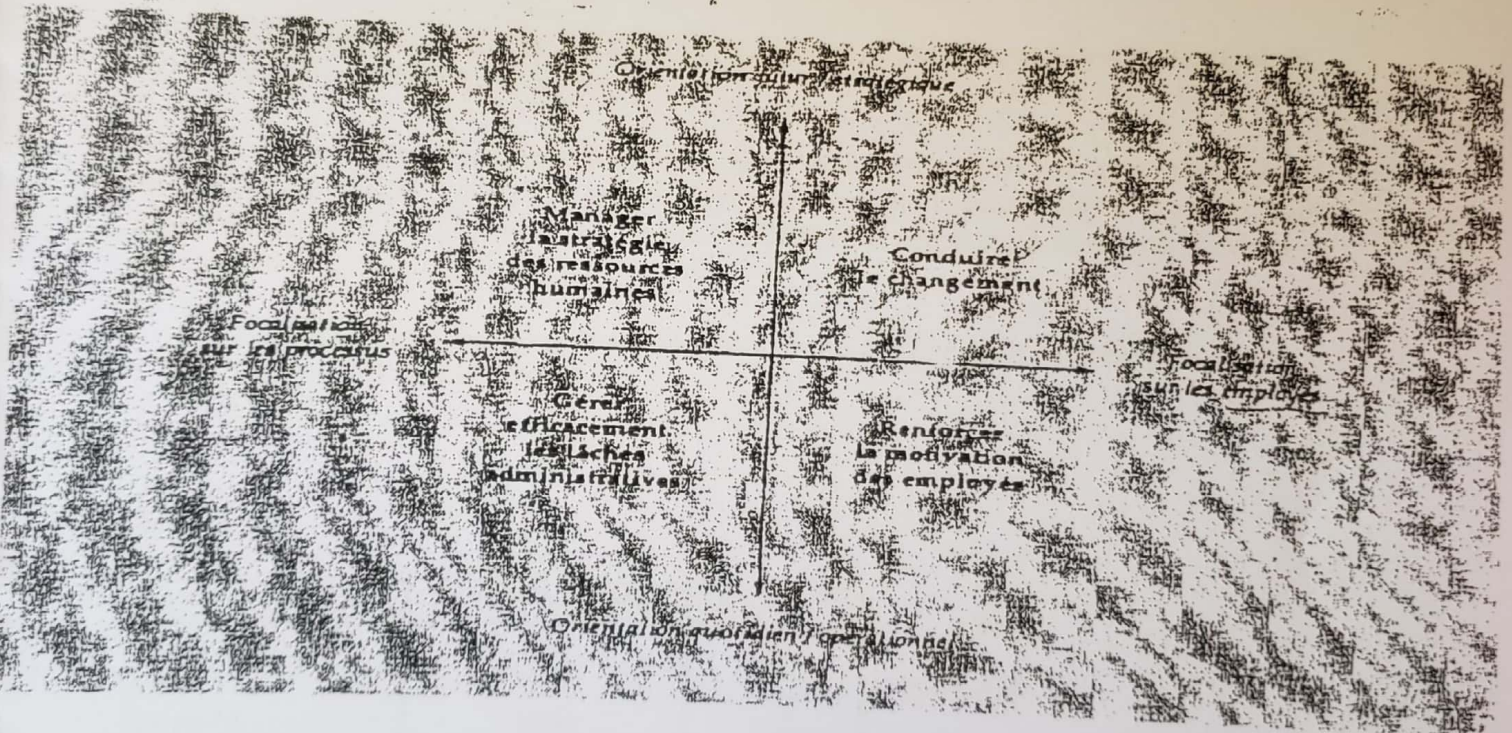 Orientation futur / stratégique
Manager
la stratégie
des ressources
humaines
Conduire
le changement
Focalisation
sur les processus
Focalisation
sur les employés
Gérer
efficacement
les tâches
administratives
Renforcer
la motivation
des employés
Orientation quotidien / opérationnel